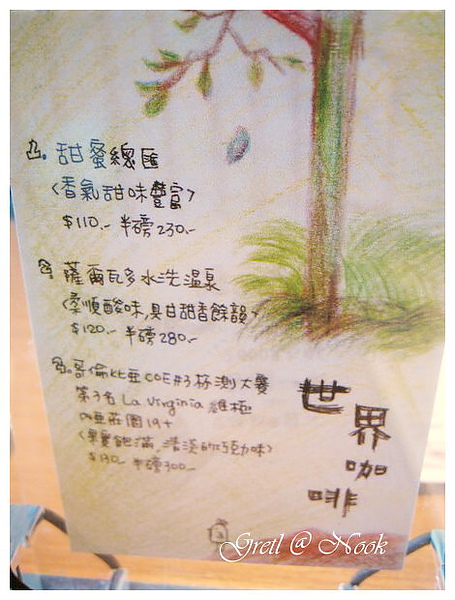 甜蜜總匯
〈香氣甜味豐富〉
$110.- 半磅230.-
薩爾瓦多水洗溫泉
〈柔順酸味,具甘甜香餘韻〉
$120.- 半磅280.-
哥倫比亞COE#3杯測大賽
第3名 La Virginia 維極
內亞莊園19+
〈果實飽滿,清淡的巧劦味〉
$130.- 半磅300.-
世界咖啡
Gretl @ Nook